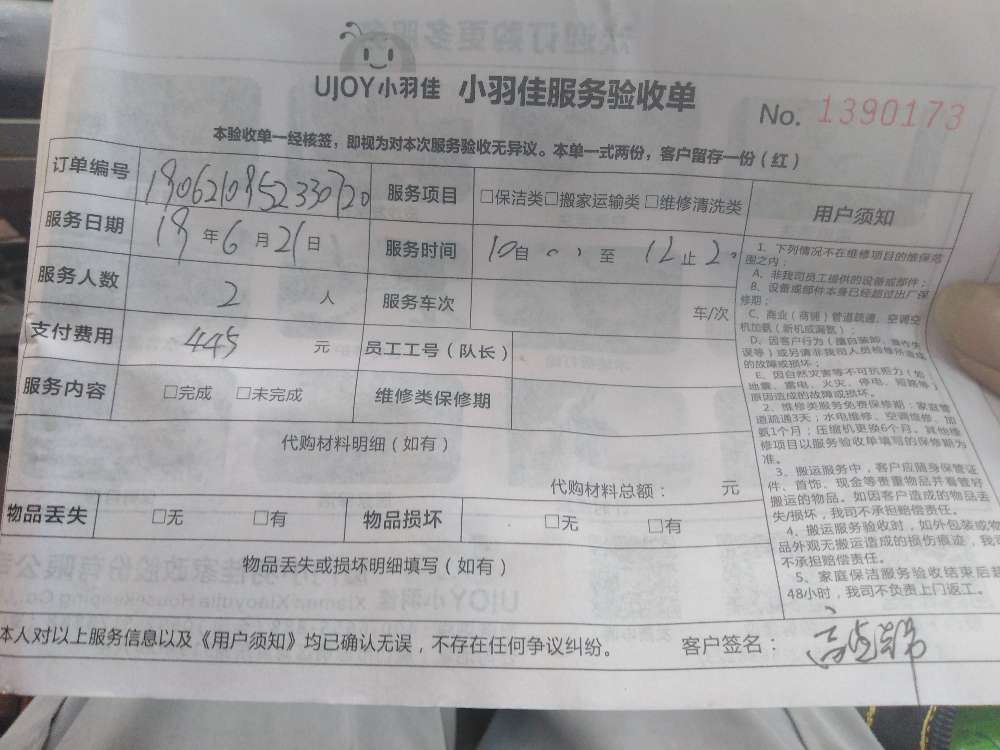 UJOY小羽佳 小羽佳服务验收单
No. 1390173
本验收单一经核签，即视为对本次服务验收无异议。本单一式两份，客户留存一份（红）
订单编号 服务项目 □保洁类□搬家运输类 □维修清洗类
服务日期 19年6月21日 服务时间 10自 至 12止
服务人数 2 人 服务车次 车/次
支付费用 445 元 员工工号（队长）
服务内容 □完成 □未完成 维修类保修期
代购材料明细（如有）
代购材料总额： 元
物品丢失 □无 □有 物品损坏 □无 □有
物品丢失或损坏明细填写（如有）
用户须知
1、下列情况不在维修项目的维保范
围之内：
A、非我司员工提供的设备或部件；
B、设备或部件本身已经超过出厂保
修期；
C、商业（商铺）管道疏通、空调空
机加氨（新机或漏氨）；
D、因客户行为（擅自装卸、操作失
误等）或另请非我司人员检修所造成
的故障或损坏；
E、因自然灾害等不可抗拒力（如：
地震、雷电、火灾、停电、短路等）
原因造成的故障或损坏。
2、维修类服务免费保修期：家庭管
道疏通3天；水电维修、空调维修、加
氨1个月；压缩机更换6个月。其他维
修项目以服务验收单填写的保修期为
准。
3、搬运服务中，客户应随身保管证
件、首饰、现金等贵重物品并看管好
搬运的物品。如因客户造成的物品丢
失/损坏，我司不承担赔偿责任。
4、搬运服务验收时，如外包装或物
品外观无搬运造成的损伤痕迹，我司
不承担赔偿责任。
5、家庭保洁服务验收结束后超
48小时，我司不负责上门返工。
本人对以上服务信息以及《用户须知》均已确认无误，不存在任何争议纠纷。 客户签名：